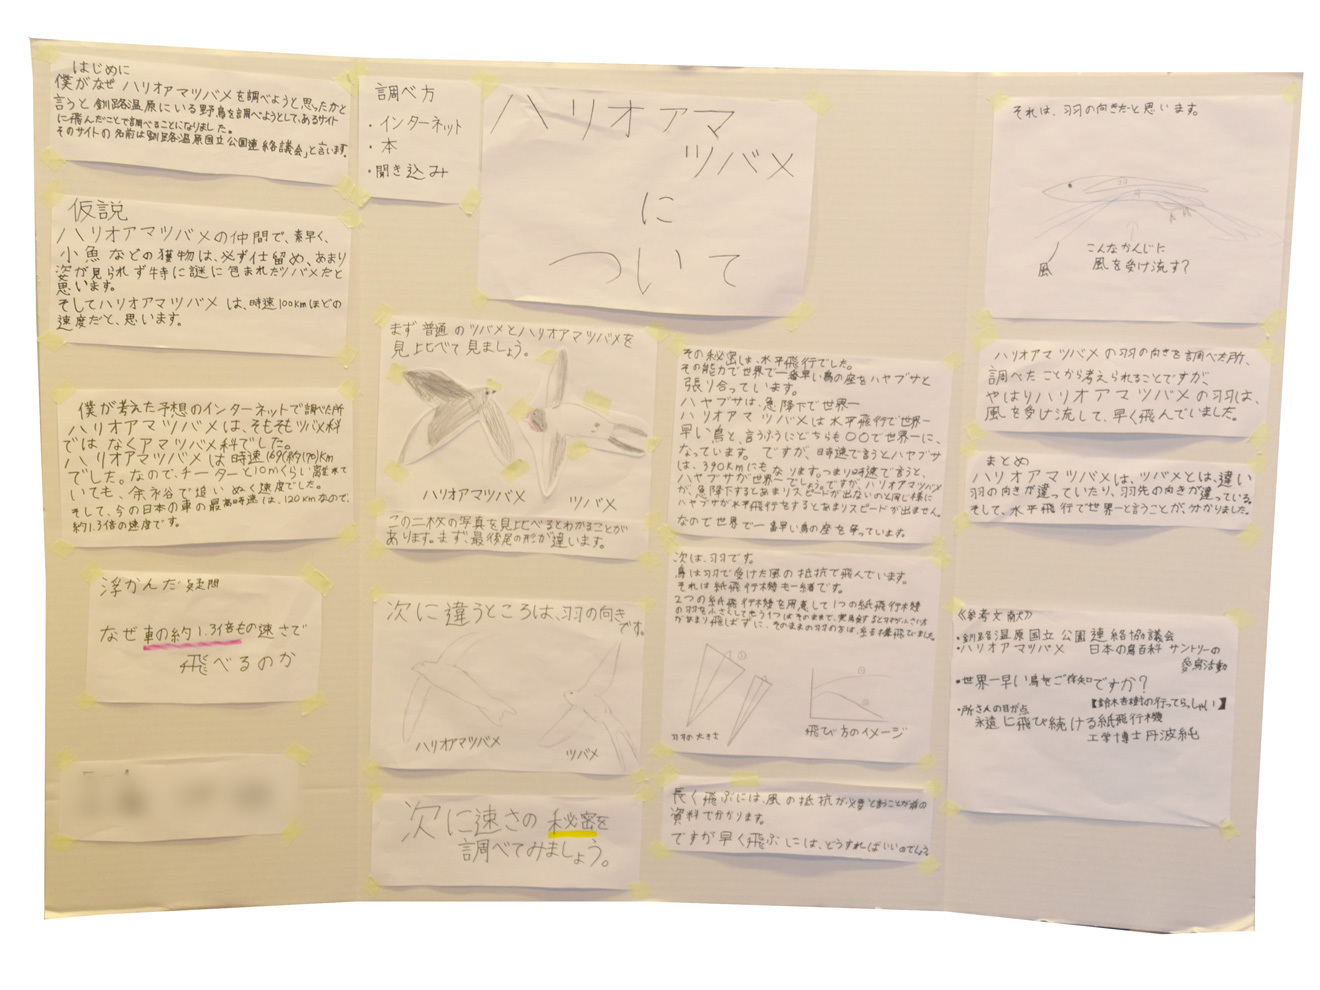 はじめに
僕がなぜ ハリオアマツバメを調べようと思ったかと
言うと 釧路湿原にいる野鳥を調べようとして、あるサイト
に飛んだことで調べることになりました。
そのサイトの名前は「釧路湿原国立公園連絡議会」と言います。
仮説
ハリオアマツバメの仲間で、素早く、
小魚などの獲物は、必ず仕留め、あまり
姿が見られず特に謎に包まれたツバメだと
思います。
そしてハリオアマツバメは、時速100kmほどの
速度だと、思います。
僕が考えた予想のインターネットで調べた所
ハリオアマツバメは、そもそもツバメ科
ではなくアマツバメ科でした。
ハリオアマツバメは時速169(約170)km
でした。なので、チーターと10mくらい離れて
いても、余裕で追いぬく速度でした。
そして、今の日本の車の最高時速は、120kmなので、
約1.3倍の速度です。
浮かんだ疑問
なぜ車の約1.3倍もの速さで
飛べるのか
調べ方
・インターネット
・本
・聞き込み
ハリオアマ
ツバメ
に
ついて
まず 普通 のツバメとハリオアマツバメを
見比べて見ましょう。
ハリオアマツバメ
ツバメ
この二枚の写真を見比べるとわかることが
あります。まず、最後尾の形が違います。
次に違うところは、羽の向き
です。
ハリオアマツバメ
ツバメ
次に速さの 秘密を
調べてみましょう。
その秘密は、水平飛行でした。
その能力で世界で一番早い鳥の座をハヤブサと
張り合っています。
ハヤブサは、急降下で世界一
ハリオアマツバメは水平飛行で世界一
早い鳥と、言うふうにどちらも〇〇で世界一に、
なっています。ですが、時速で言うとハヤブサ
は、390kmにもなります。つまり時速で言うと、
ハヤブサが世界一でしょう。ですが、ハリオアマツバメ
が、急降下するとあまりスピードが出ないのと同じ様に
ハヤブサが水平飛行をするとあまりスピードが出ません。
なので世界で一番早い鳥の座を争っています。
次は、羽です。
鳥は羽で受けた風の抵抗で飛んでいます。
それは紙飛行機も一緒です。
2つの紙飛行機を用意して1つの紙飛行機
の羽を小さくしてもう1つはそのままで、実験すると羽が小さい方
があまり飛ばずに、そのままの羽の方は、結構飛びました。
羽の大きさ
飛び方のイメージ
長く飛ぶには、風の抵抗が必要と言うことが前の
資料でわかります。
ですが早く飛ぶには、どうすればいいのでしょう
それは、羽の向きだと思います。
風
こんなかんじに
風を受け流す?
ハリオアマツバメの羽の向きを調べた所、
調べたことから考えられることですが、
やはりハリオアマツバメの羽は、
風を受け流して、早く飛んでいました。
まとめ
ハリオアマツバメは、ツバメとは、違い
羽の向きが違っていたり、羽先の向きが違っている。
そして、水平飛行で世界一と言うことが、分かりました。
《参考文献》
・釧路湿原国立公園連絡協議会
・ハリオアマツバメ 日本の鳥百科 サントリーの
愛鳥活動
・世界一早い鳥をご存知ですか?
【鈴木杏樹の行ってらっしゃい】
・所さんの目が点
永遠に飛び続ける紙飛行機
工学博士丹波純